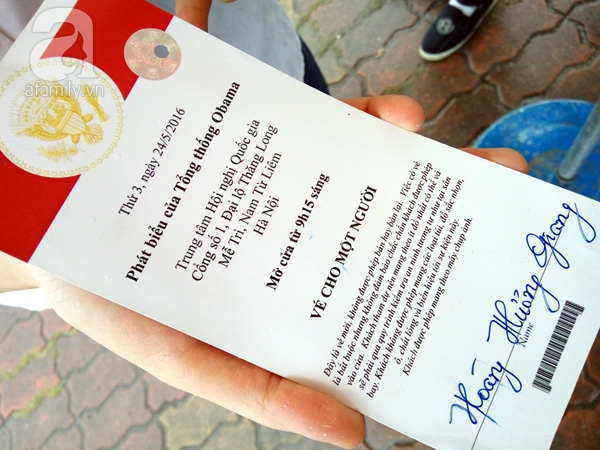 a
afamily.vn
Thứ 3, ngày 24/5/2016
Phát biểu của Tổng thống Obama
Trung tâm Hội nghị Quốc gia
Cổng số 1, Đại lộ Thăng Long
Mễ Trì, Nam Từ Liêm
Hà Nội
Mở cửa từ 9h15 sáng
VÉ CHO MỘT NGƯỜI
Đây là vé mời, không được phép bán hay bán lại. Việc có vé
là bắt buộc nhưng không đảm bảo chắc chắn khách được phép
vào cửa. Khách tham dự nên mang theo ít đồ nhất có thể và
sẽ phải qua quy trình kiểm tra an ninh tương tự như tại sân
bay. Khách không được phép mang các loại túi, đồ sắc nhọn,
ô, chất lỏng và biển hiệu tới sự kiện này.
Khách được phép mang theo máy chụp ảnh.
Hoàng Hương Giang
Name